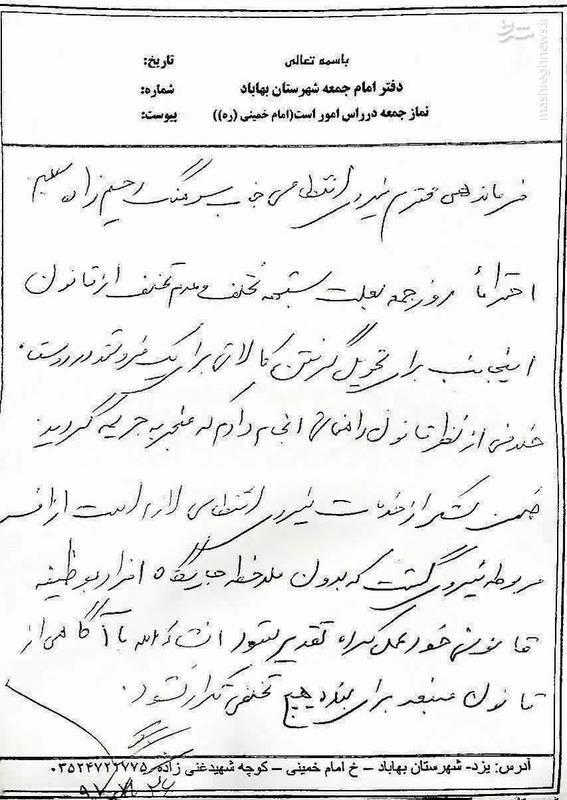 باسمه تعالی
تاریخ:
دفتر امام جمعه شهرستان بهاباد
شماره:
نماز جمعه درراس امور است(امام خمینی (ره))
پیوست:
مشرق
mashreghnews.ir
فرماندهی محترم نیروی انتظامی جناب سرهنگ رحیم زاده
احتراماً روز جمعه بعلت شبهه تخلف و عدم تخلف از قانون
اینجانب برای تحویل گرفتن کالائی برای یک فروشنده
از نظر قانون راهنمائی انجام دادم که منجر به جریمه گردید
ضمن تشکر از خدمات نیروی انتظامی لازم است از افسر
مربوطه نیروی گشت که بدون ملاحظه جایگاه افراد بوظیفه
قانونی خود عمل کرده تقدیر بشود انشاءالله با آگاهی از
قانون منبعد برای بنده هیچ تخلفی تکرار نشود.
آدرس: یزد- شهرستان بهاباد – خ امام خمینی – کوچه شهیدغنی زاده